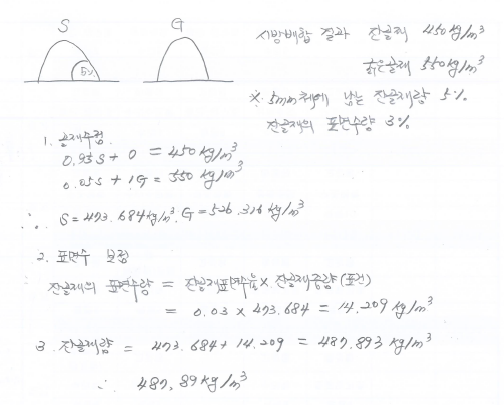 S
G
5%
시방배합 결과 잔골재 450kg/m³
굵은골재 550kg/m³
※ 5mm체에 남는 잔골재량 5%
잔골재의 표면수량 3%
1. 골재수정
0.95S + 0 = 450kg/m³
0.05S + 1G = 550 kg/m³
∴ S = 473.684kg/m³, G = 526.316kg/m³
2. 표면수 보정
잔골재의 표면수량 = 잔골재표면수율 × 잔골재중량(표건)
= 0.03 × 473.684 = 14.209 kg/m³
3. 잔골재량 = 473.684 + 14.209 = 487.893 kg/m³
∴ 487.89kg/m³